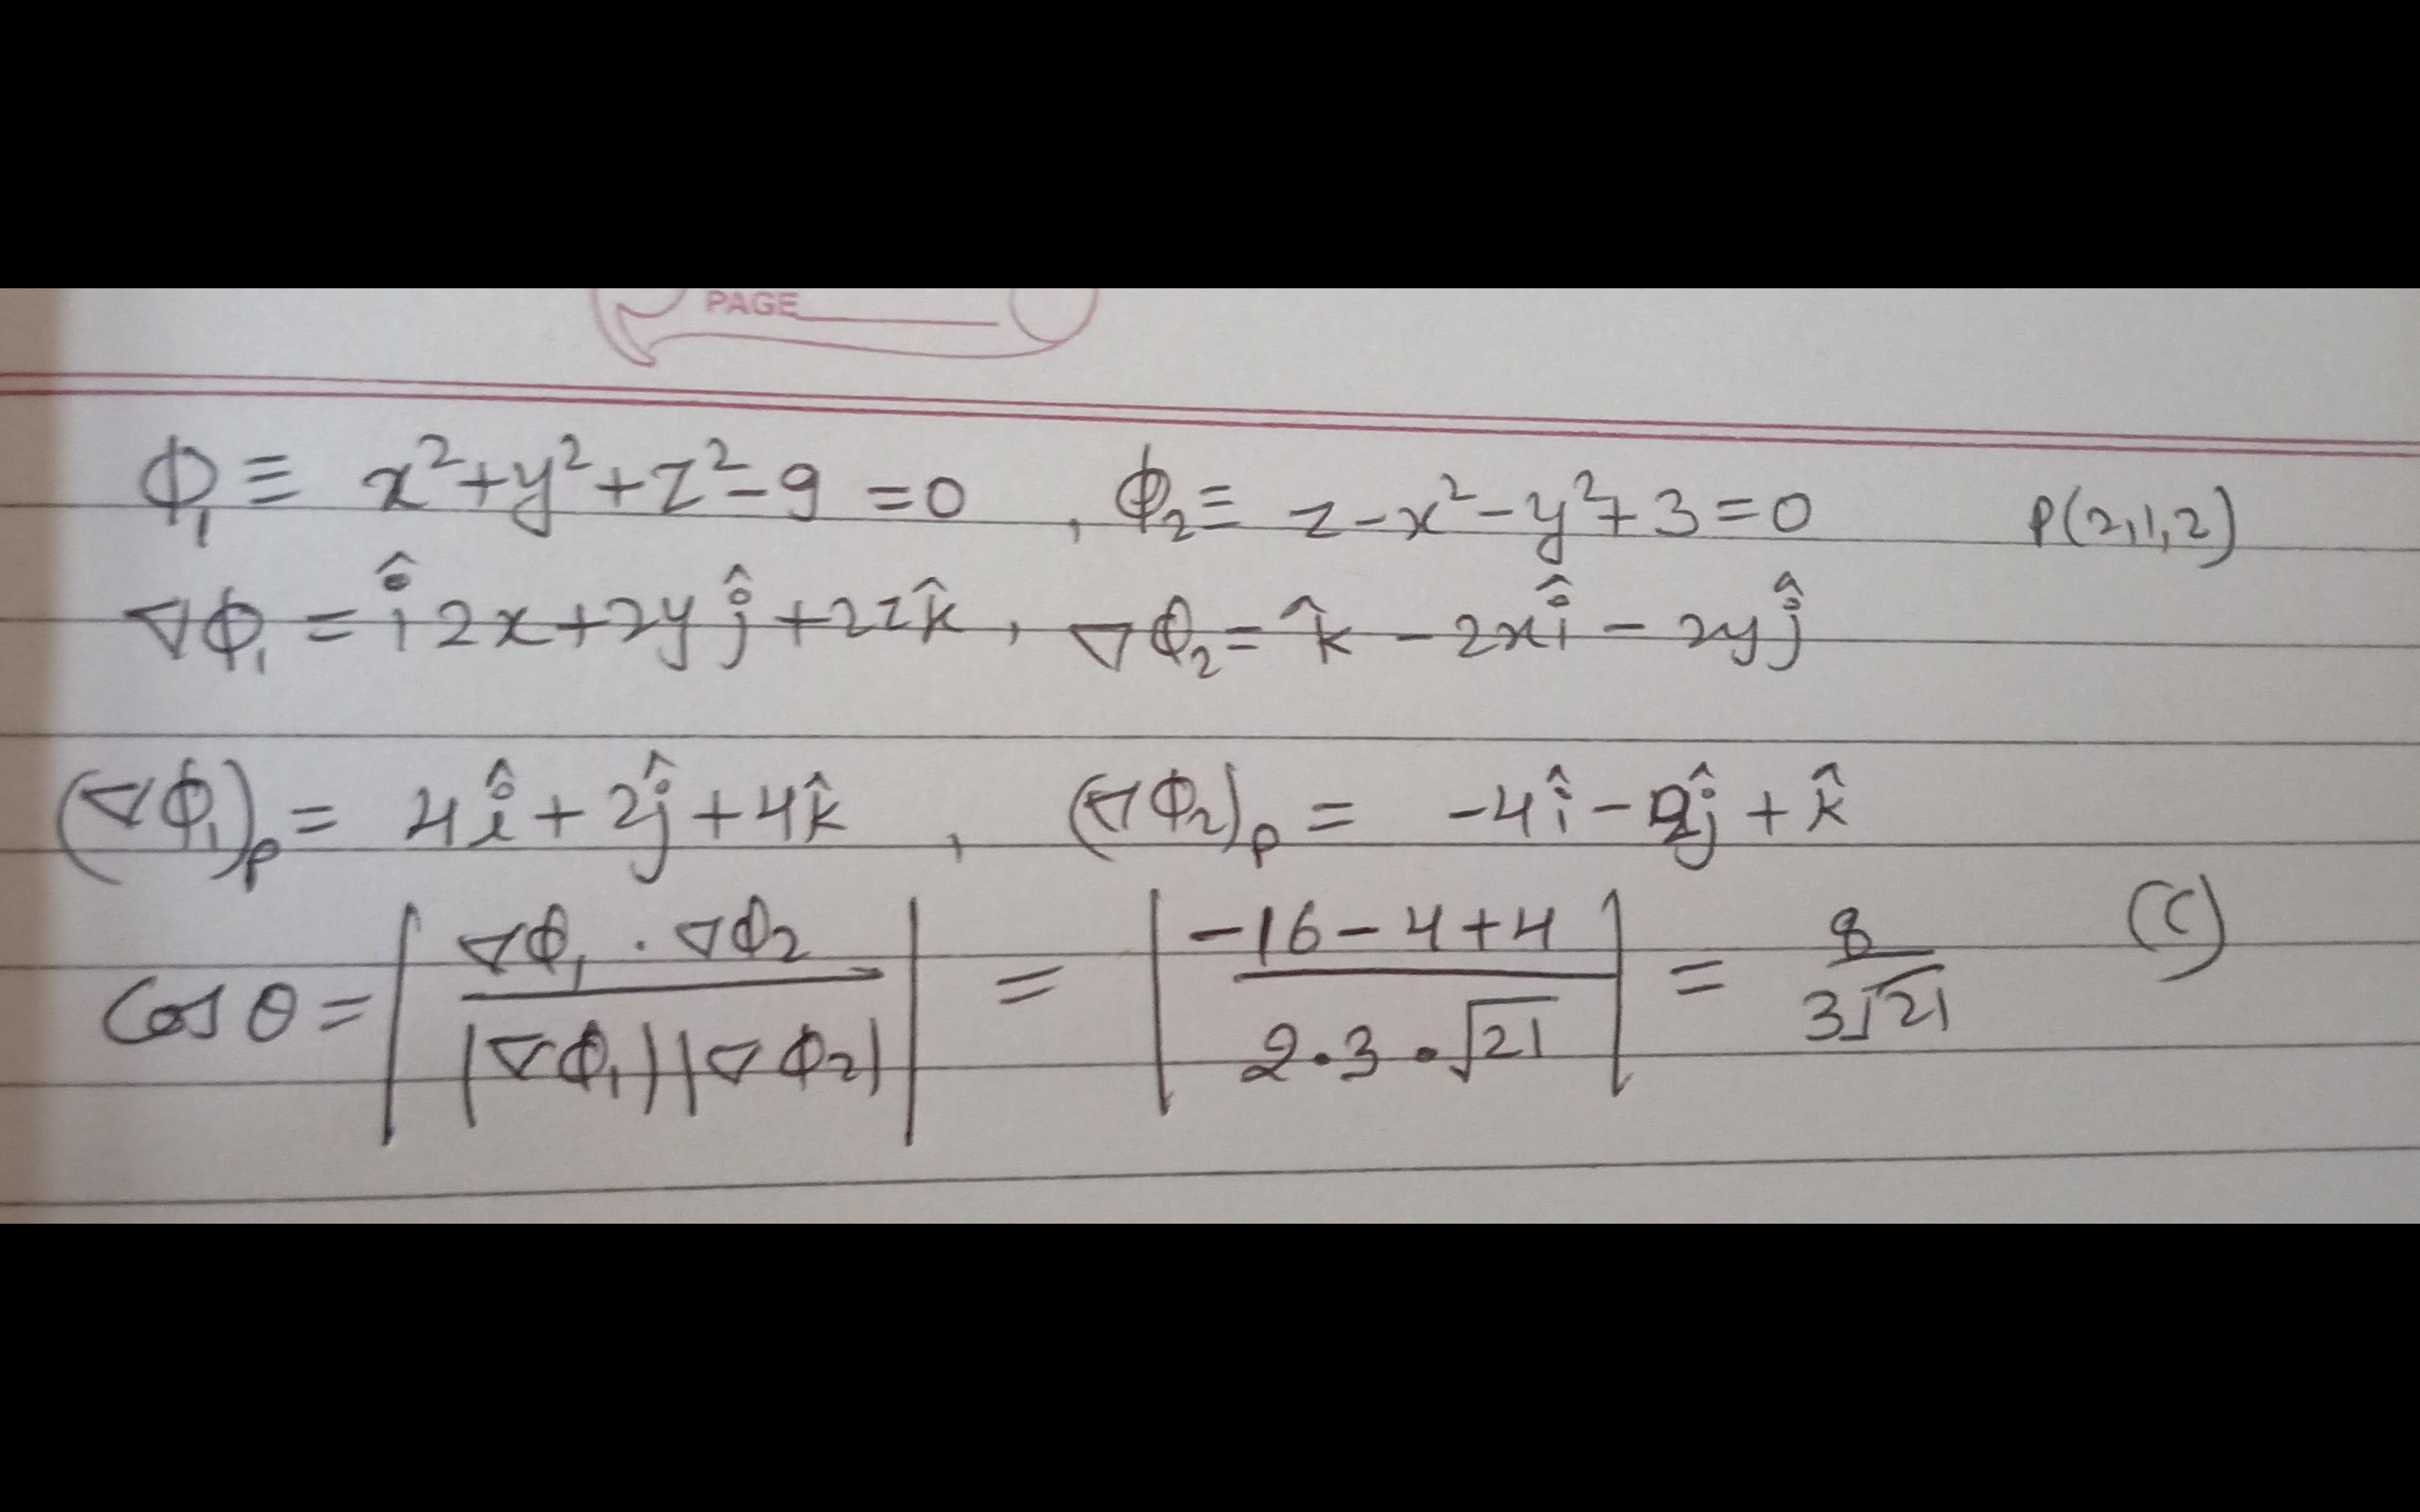 PAGE
ϕ₁ ≡ x²+y²+z²-9 =0 , ϕ₂ ≡ z-x²-y²+3=0 P(2,1,2)
∇ϕ₁ = î2x+2yĵ+2zk̂ , ∇ϕ₂= k̂ - 2xî - 2yĵ
(∇ϕ₁)ₚ = 4î+2ĵ+4k̂ , (∇ϕ₂)ₚ = -4î-2ĵ+k̂
Cosθ = |∇ϕ₁ . ∇ϕ₂ / |∇ϕ₁||∇ϕ₂|| = |-16-4+4 / 2·3·√21| = 8/3√21 (C)